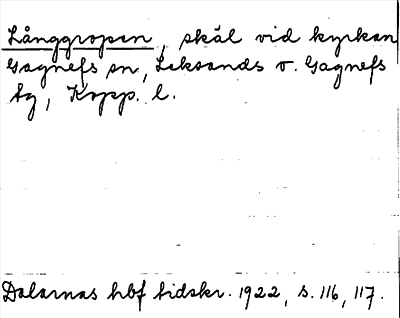 Långgropen, skäl vid kyrkan
Gagnefs sn, Leksands o. Gagnefs
tg, Kopp. l.
Dalarnas hbf tidskr. 1922, s. 116, 117.